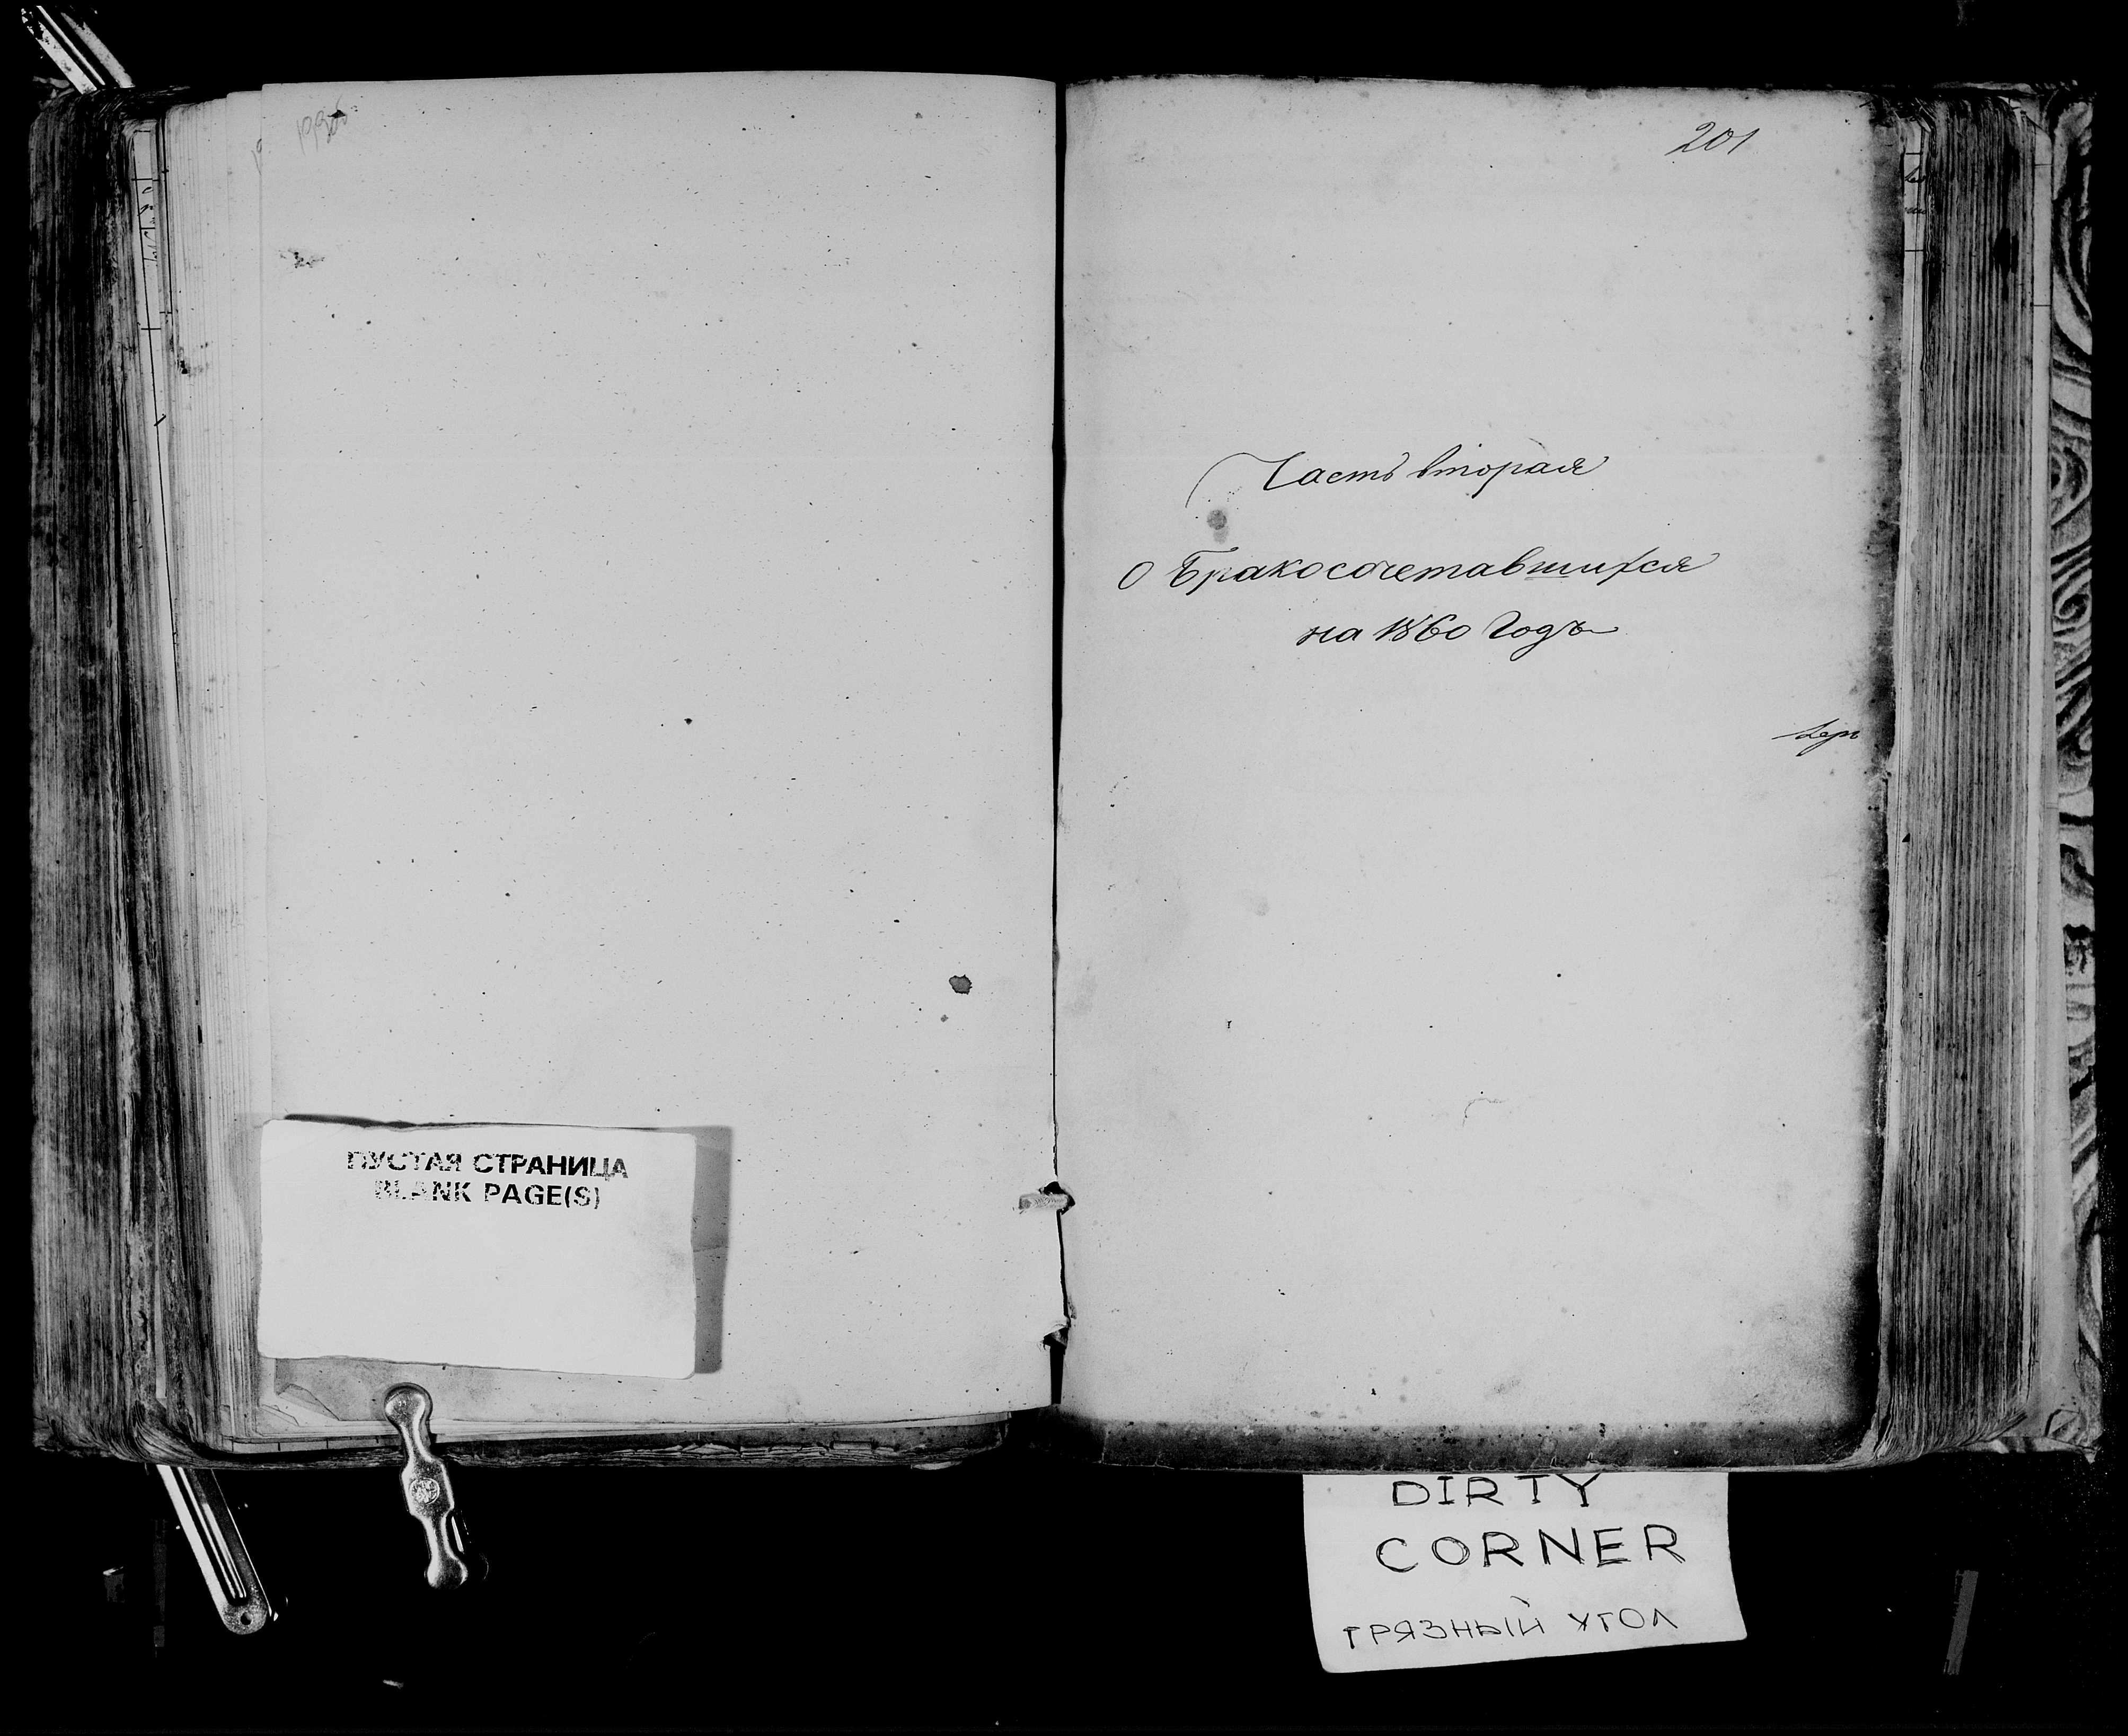 201
Часть вторая
О Бракосочетавшихся
на 1860 Годъ
ПУСТАЯ СТРАНИЦА
BLANK PAGE(S)
DIRTY
CORNER
ГРЯЗНЫЙ УГОЛ